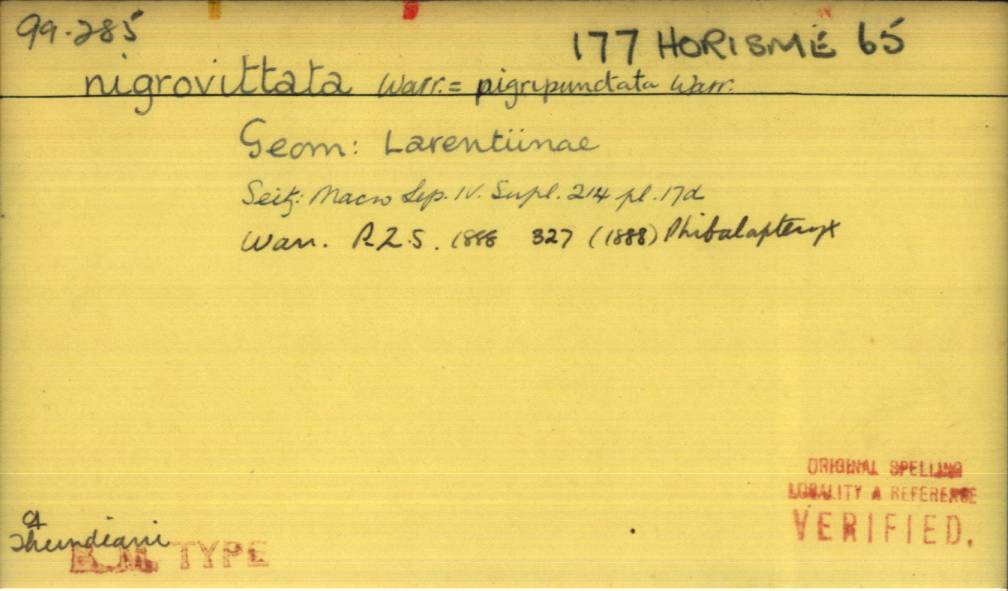 99.285
177 HORISME 65
nigrovittata Warr. = nigripunctata Warr.
Geom: Larentiinae
Seitz: Macro Lep. IV. Supl. 214 pl. 17d
Warr. P.Z.S. 1888 327 (1888) Phibalapteryx
ORIGINAL SPELLING
LOCALITY & REFERENCE
VERIFIED.
Thundiani
B.M. TYPE